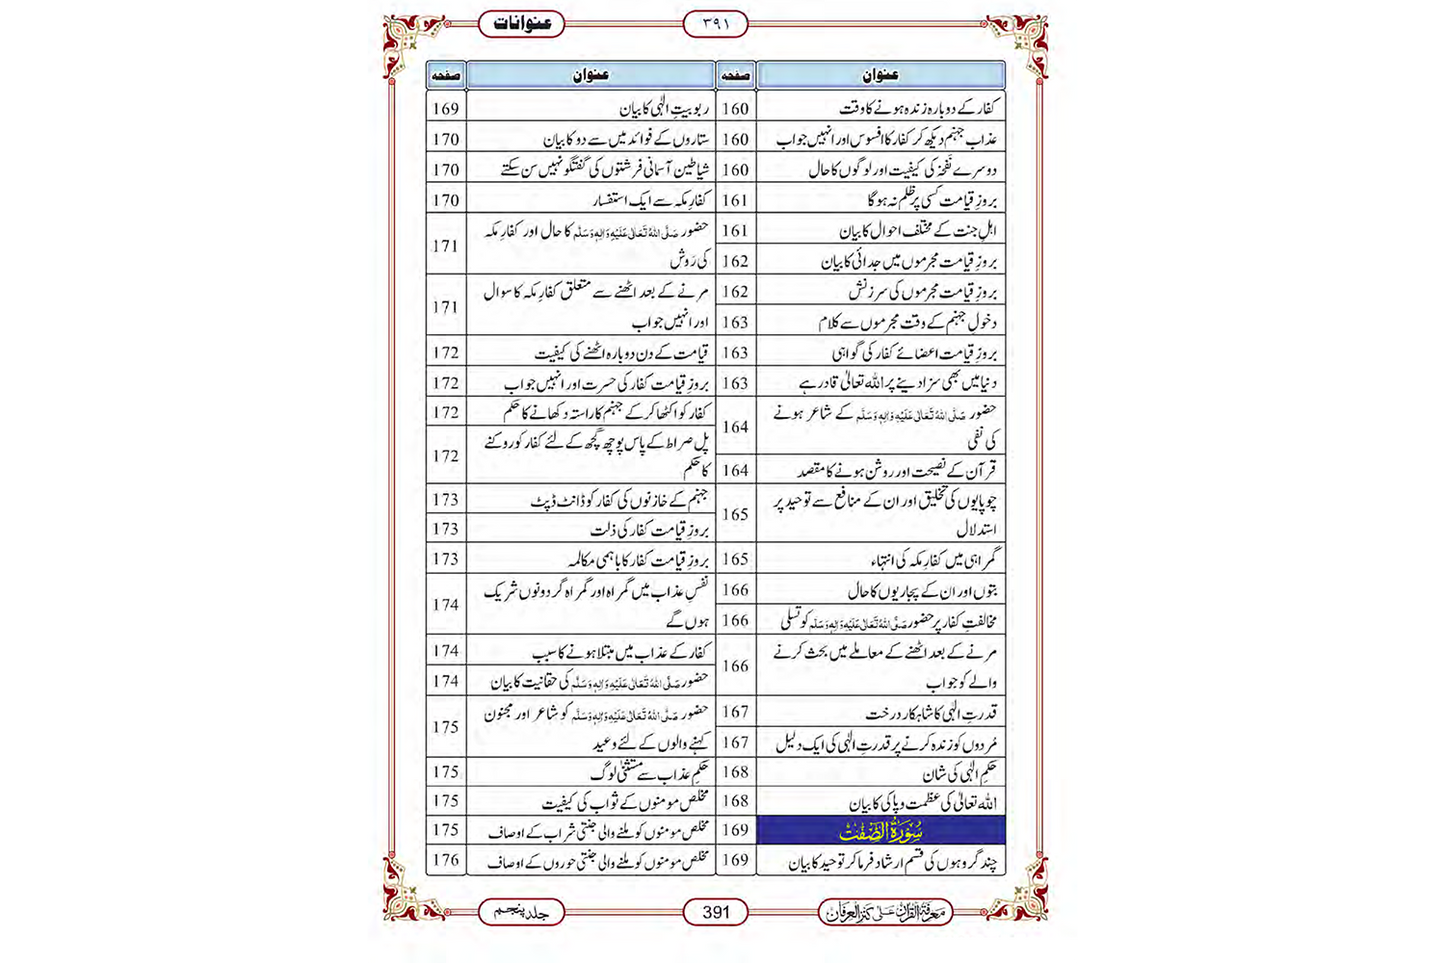 عنوانات
۳۹۱
عنوان صفحہ
کفار کے دوبارہ زندہ ہونے کا وقت 160
عذاب جہنم دیکھ کر کفار کا افسوس اور انہیں جواب 160
دوسرے نَفْخہ کی کیفیت اور لوگوں کا حال 160
بروزِ قیامت کسی پر ظلم نہ ہوگا 161
اہلِ جنت کے مختلف احوال کا بیان 161
بروزِ قیامت مجرموں میں جدائی کا بیان 162
بروزِ قیامت مجرموں کی سرزنش 162
دخولِ جہنم کے وقت مجرموں سے کلام 163
بروزِ قیامت اعضائے کفار کی گواہی 163
دنیا میں بھی سزا دینے پر اللہ تعالیٰ قادر ہے 163
حضور صَلَّی اللہُ تَعَالٰی عَلَیْہِ وَاٰلِہٖ وَسَلَّم کے شاعر ہونے
کی نفی 164
قرآن کے نصیحت اور روشن ہونے کا مقصد 164
چوپایوں کی تخلیق اور ان کے منافع سے توحید پر
استدلال 165
گمراہی میں کفارِ مکہ کی انتہاء 165
بتوں اور ان کے پجاریوں کا حال 166
مخالفتِ کفار پر حضور صَلَّی اللہُ تَعَالٰی عَلَیْہِ وَاٰلِہٖ وَسَلَّم کو تسلی 166
مرنے کے بعد اٹھنے کے معاملے میں بحث کرنے
والے کو جواب 166
قدرتِ الٰہی کا شاہکار درخت 167
مُردوں کو زندہ کرنے پر قدرتِ الٰہی کی ایک دلیل 167
حکمِ الٰہی کی شان 168
اللہ تعالیٰ کی عظمت و پاکی کا بیان 168
سُوْرَۃُ الصّٰفّٰت 169
چند گروہوں کی قسم ارشاد فرما کر توحید کا بیان 169
عنوان صفحہ
ربوبیتِ الٰہی کا بیان 169
ستاروں کے فوائد میں سے دو کا بیان 170
شیاطین آسمانی فرشتوں کی گفتگو نہیں سن سکتے 170
کفارِ مکہ سے ایک استفسار 170
حضور صَلَّی اللہُ تَعَالٰی عَلَیْہِ وَاٰلِہٖ وَسَلَّم کا حال اور کفارِ مکہ
کی رَوِش 171
مرنے کے بعد اٹھنے سے متعلق کفارِ مکہ کا سوال
اور انہیں جواب 171
قیامت کے دن دوبارہ اٹھنے کی کیفیت 172
بروزِ قیامت کفار کی حسرت اور انہیں جواب 172
کفار کو اکٹھا کر کے جہنم کا راستہ دکھانے کا حکم 172
پل صراط کے پاس پوچھ گچھ کے لئے کفار کو روکنے
کا حکم 172
جہنم کے خازنوں کی کفار کو ڈانٹ ڈپٹ 173
بروزِ قیامت کفار کی ذلت 173
بروزِ قیامت کفار کا باہمی مکالمہ 173
نفسِ عذاب میں گمراہ اور گمراہ گر دونوں شریک
ہوں گے 174
کفار کے عذاب میں مبتلا ہونے کا سبب 174
حضور صَلَّی اللہُ تَعَالٰی عَلَیْہِ وَاٰلِہٖ وَسَلَّم کی حقانیت کا بیان 174
حضور صَلَّی اللہُ تَعَالٰی عَلَیْہِ وَاٰلِہٖ وَسَلَّم کو شاعر اور مجنون
کہنے والوں کے لئے وعید 175
حکمِ عذاب سے مستثنیٰ لوگ 175
مخلص مومنوں کے ثواب کی کیفیت 175
مخلص مومنوں کو ملنے والی جنتی شراب کے اوصاف 175
مخلص مومنوں کو ملنے والی جنتی حوروں کے اوصاف 176
معرفۃ القرآن علٰی کنز العرفان
391
جلد پنجم